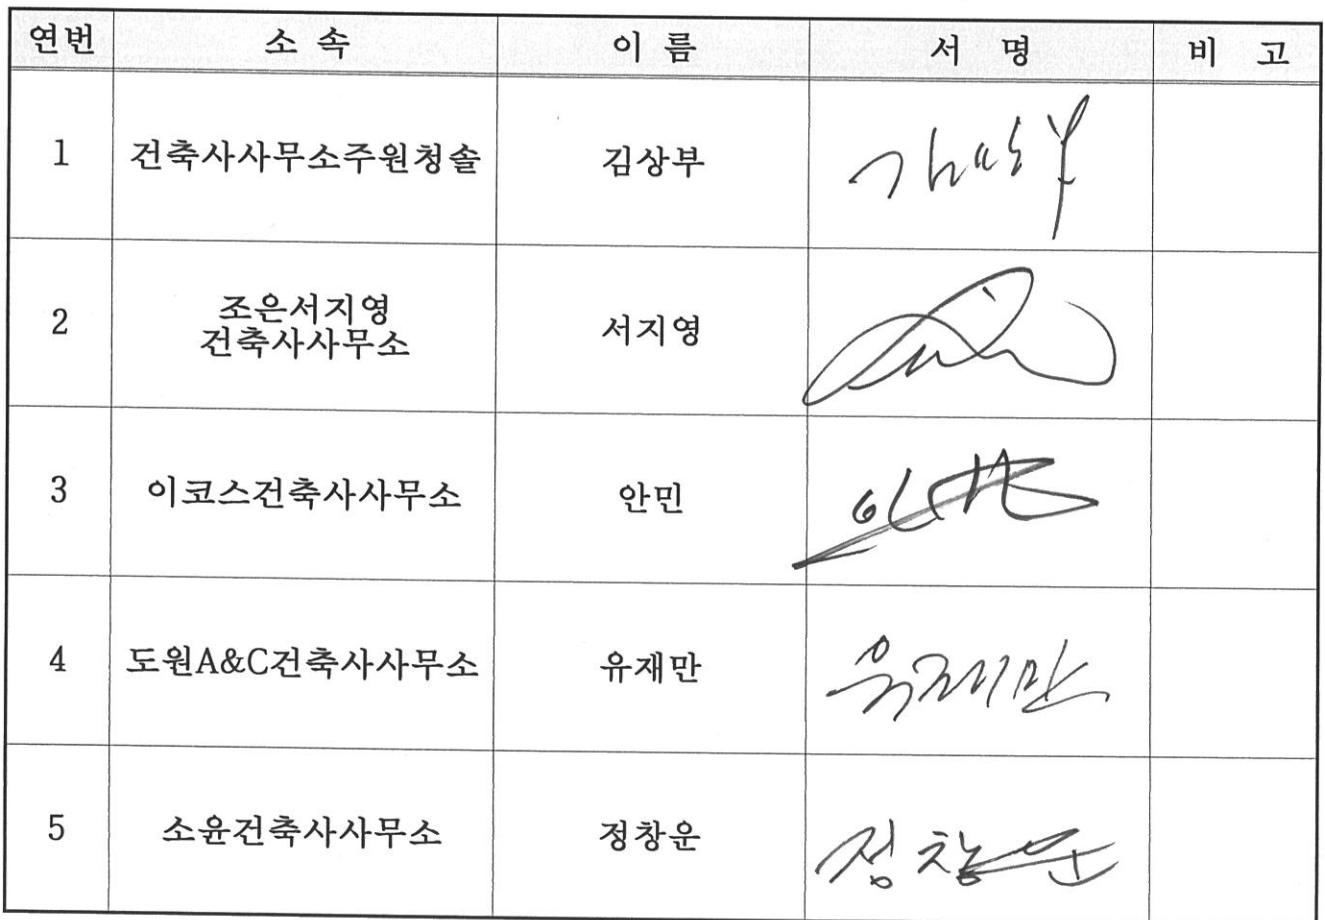 연번 소 속 이 름 서 명 비 고
1 건축사사무소주원청솔 김상부
2 조은서지영
건축사사무소 서지영
3 이코스건축사사무소 안민
4 도원A&C건축사사무소 유재만 유재만
5 소윤건축사사무소 정창운 정창운